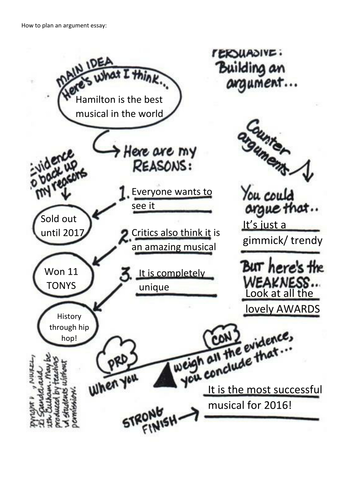 How to plan an argument essay:
MAIN IDEA
Here's what I think...
Hamilton is the best
musical in the world
PERSUASIVE:
Building an
argument...
Here are my
REASONS:
Evidence
to back up
my reasons
1. Everyone wants to
see it
2. Critics also think it is
an amazing musical
3. It is completely
unique
Sold out
until 2017
Won 11
TONYS
History
through hip
hop!
Counter
arguments
You could
argue that..
It's just a
gimmick/ trendy
BUT here's the
WEAKNESS...
Look at all the
lovely AWARDS
PRO
CON
When you
weigh all the evidence,
you conclude that...
STRONG
FINISH
It is the most successful
musical for 2016!
May be
produced by teachers
students without
permission.